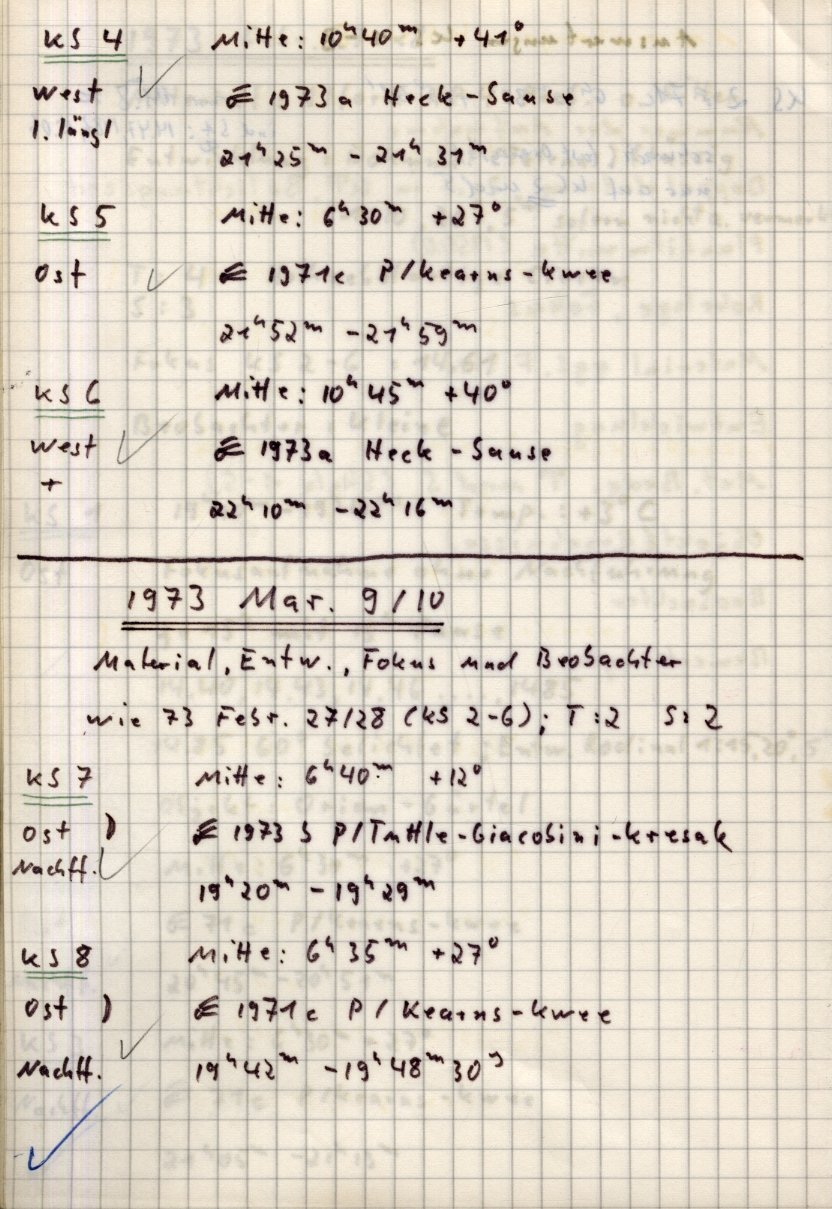 KS 4 Mitte: 10ʰ40ᵐ +41°
West ☄ 1973a Heck-Sause
1. längl
21ʰ25ᵐ - 21ʰ31ᵐ
KS 5 Mitte: 6ʰ30ᵐ +27°
Ost ☄ 1971c P/Kearns-Kwee
21ʰ52ᵐ - 21ʰ59ᵐ
KS 6 Mitte: 10ʰ45ᵐ +40°
West ☄ 1973a Heck-Sause
+
22ʰ10ᵐ - 22ʰ16ᵐ
1973 Mar. 9/10
Material, Entw., Fokus und Beobachter
wie 73 Febr. 27/28 (KS 2-6); T:2 S:2
KS 7 Mitte: 6ʰ40ᵐ +12°
Ost ) ☄ 1973 b P/Tuttle-Giacobini-Kresak
Nachff.
19ʰ20ᵐ - 19ʰ29ᵐ
KS 8 Mitte: 6ʰ35ᵐ +27°
Ost ) ☄ 1971c P/Kearns-Kwee
Nachff. 19ʰ42ᵐ - 19ʰ48ᵐ30ˢ